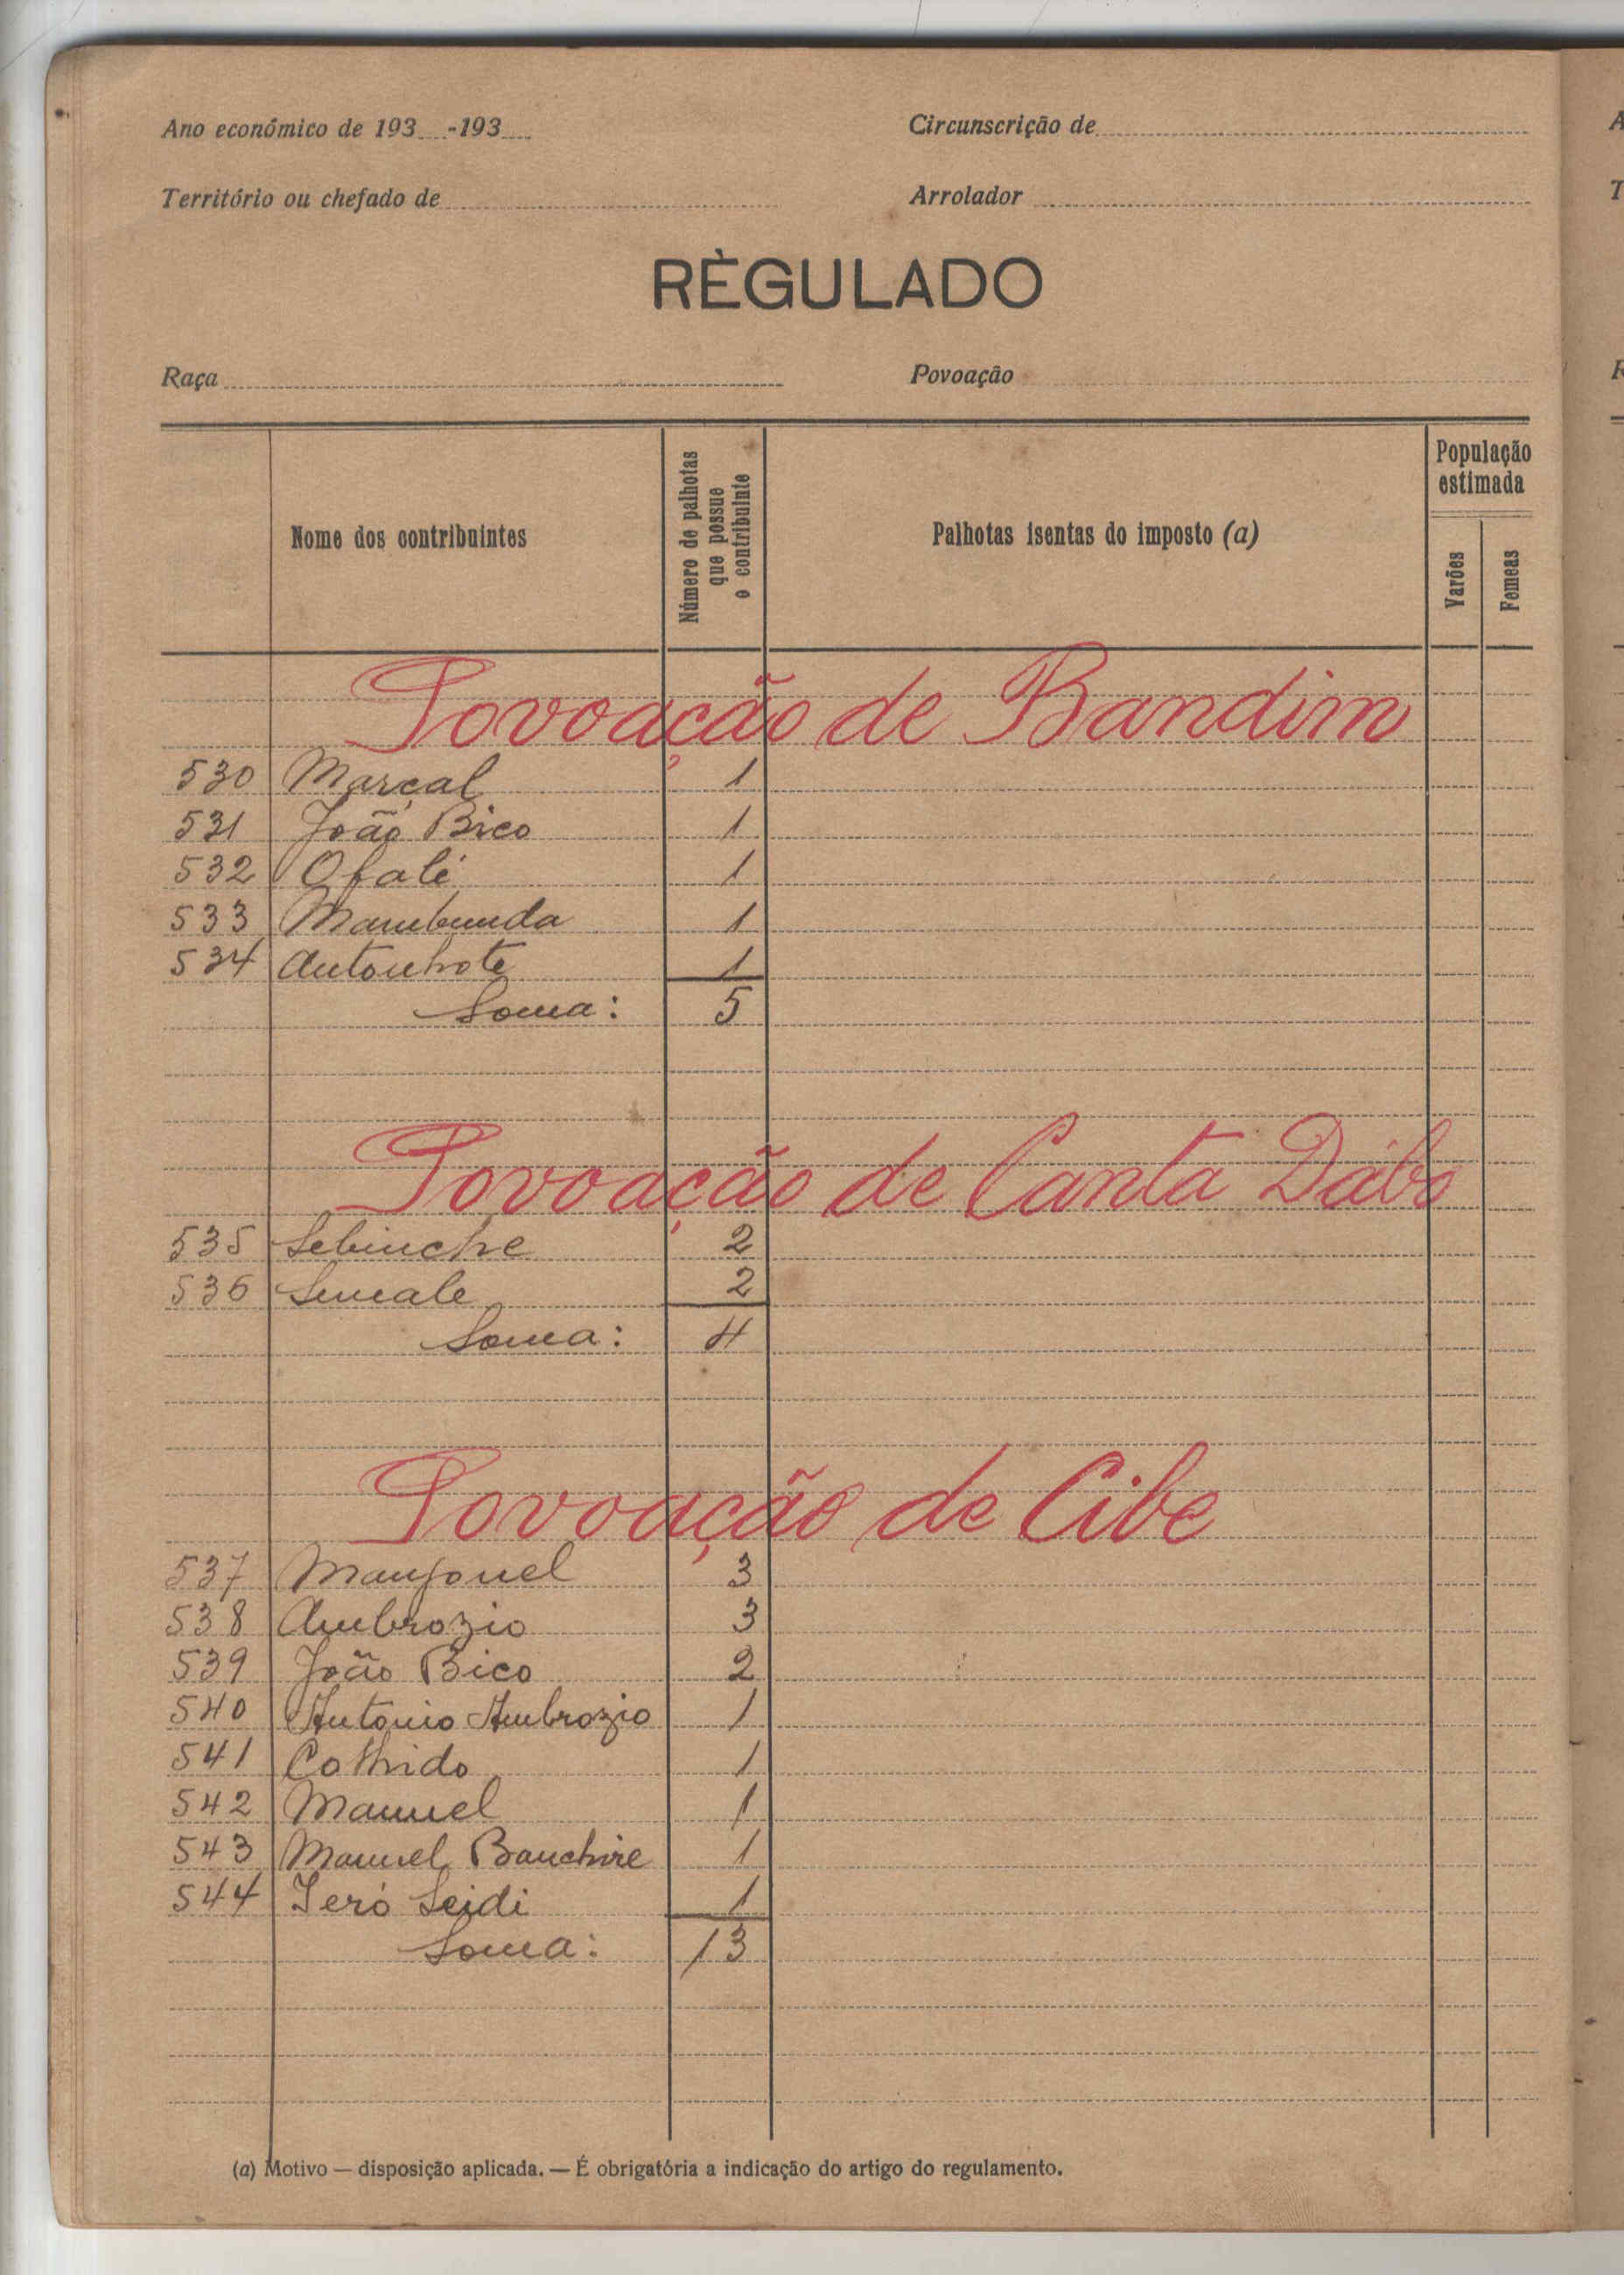 Ano económico de 193 -193
Circunscrição de
Território ou chefado de
Arrolador
RÈGULADO
Raça
Povoação
Nome dos contribuintes
Número de palhotas que possue o contribuinte
Palhotas isentas do imposto (a)
População estimada
Varões
Femeas
Povoação de Bandim
530 Marçal 1
531 João Bico 1
532 Ofalé 1
533 Mambunda 1
534 Antonhote 1
Soma: 5
Povoação de Canta Dábo
535 Sebinche 2
536 2
Soma: 4
Povoação de Cibe
537 Manjonel 3
538 Ambrozio 3
539 João Bico 2
540 Antonio Ambrozio 1
541 1
542 Manuel 1
543 Manuel Banchire 1
544 Iero Seidi 1
Soma: 13
(a) Motivo — disposição aplicada. — É obrigatória a indicação do artigo do regulamento.